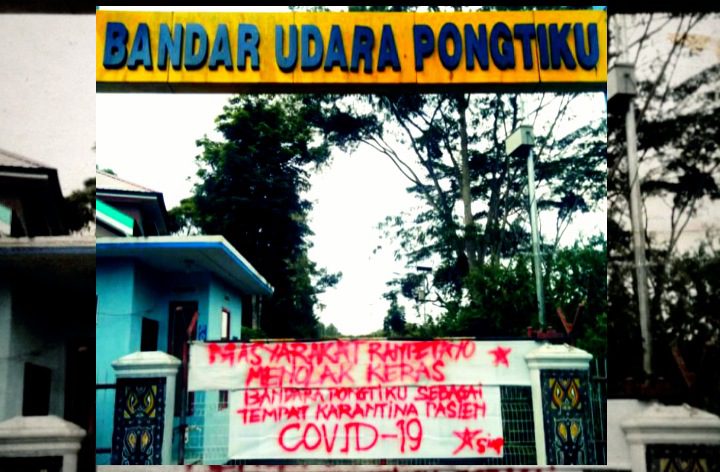 BANDAR UDARA PONGTIKU
MASYARAKAT RANTETAYO
MENOLAK KERAS
BANDARA PONGTIKU SEBAGAI
TEMPAT KARANTINA PASIEN
COVID-19